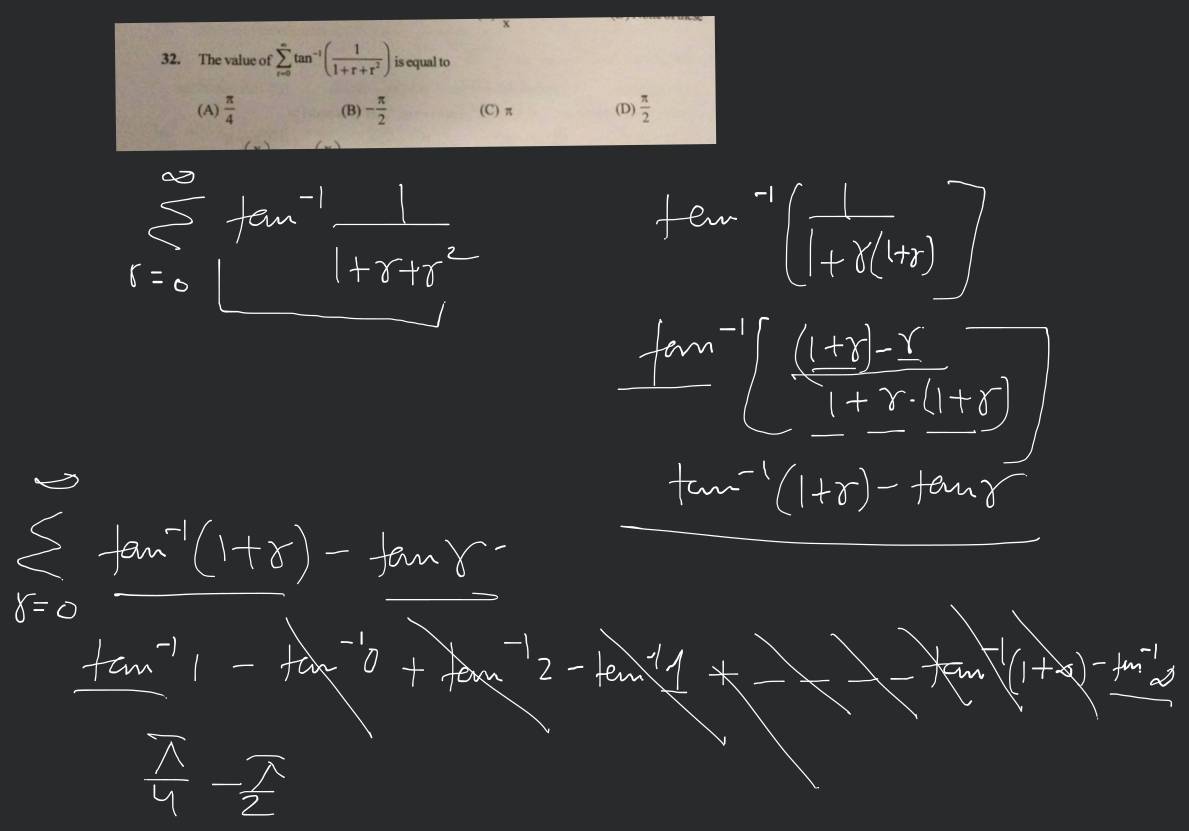 32. The value of ∑_{r=0}^{∞} tan⁻¹(1/(1+r+r²)) is equal to
(A) π/4 (B) -π/2 (C) π (D) π/2
∑_{r=0}^{∞} tan⁻¹ 1/(1+r+r²)
tan⁻¹[1/(1+r(1+r))]
tan⁻¹[((1+r)-r)/(1+r·(1+r))]
tan⁻¹(1+r) - tan r
∑_{r=0}^{∞} tan⁻¹(1+r) - tan r
tan⁻¹ 1 - tan⁻¹ 0 + tan⁻¹ 2 - tan⁻¹ 1 + _ _ _ _ tan⁻¹(1+∞) - tan⁻¹ ∞
π/4 - π/2